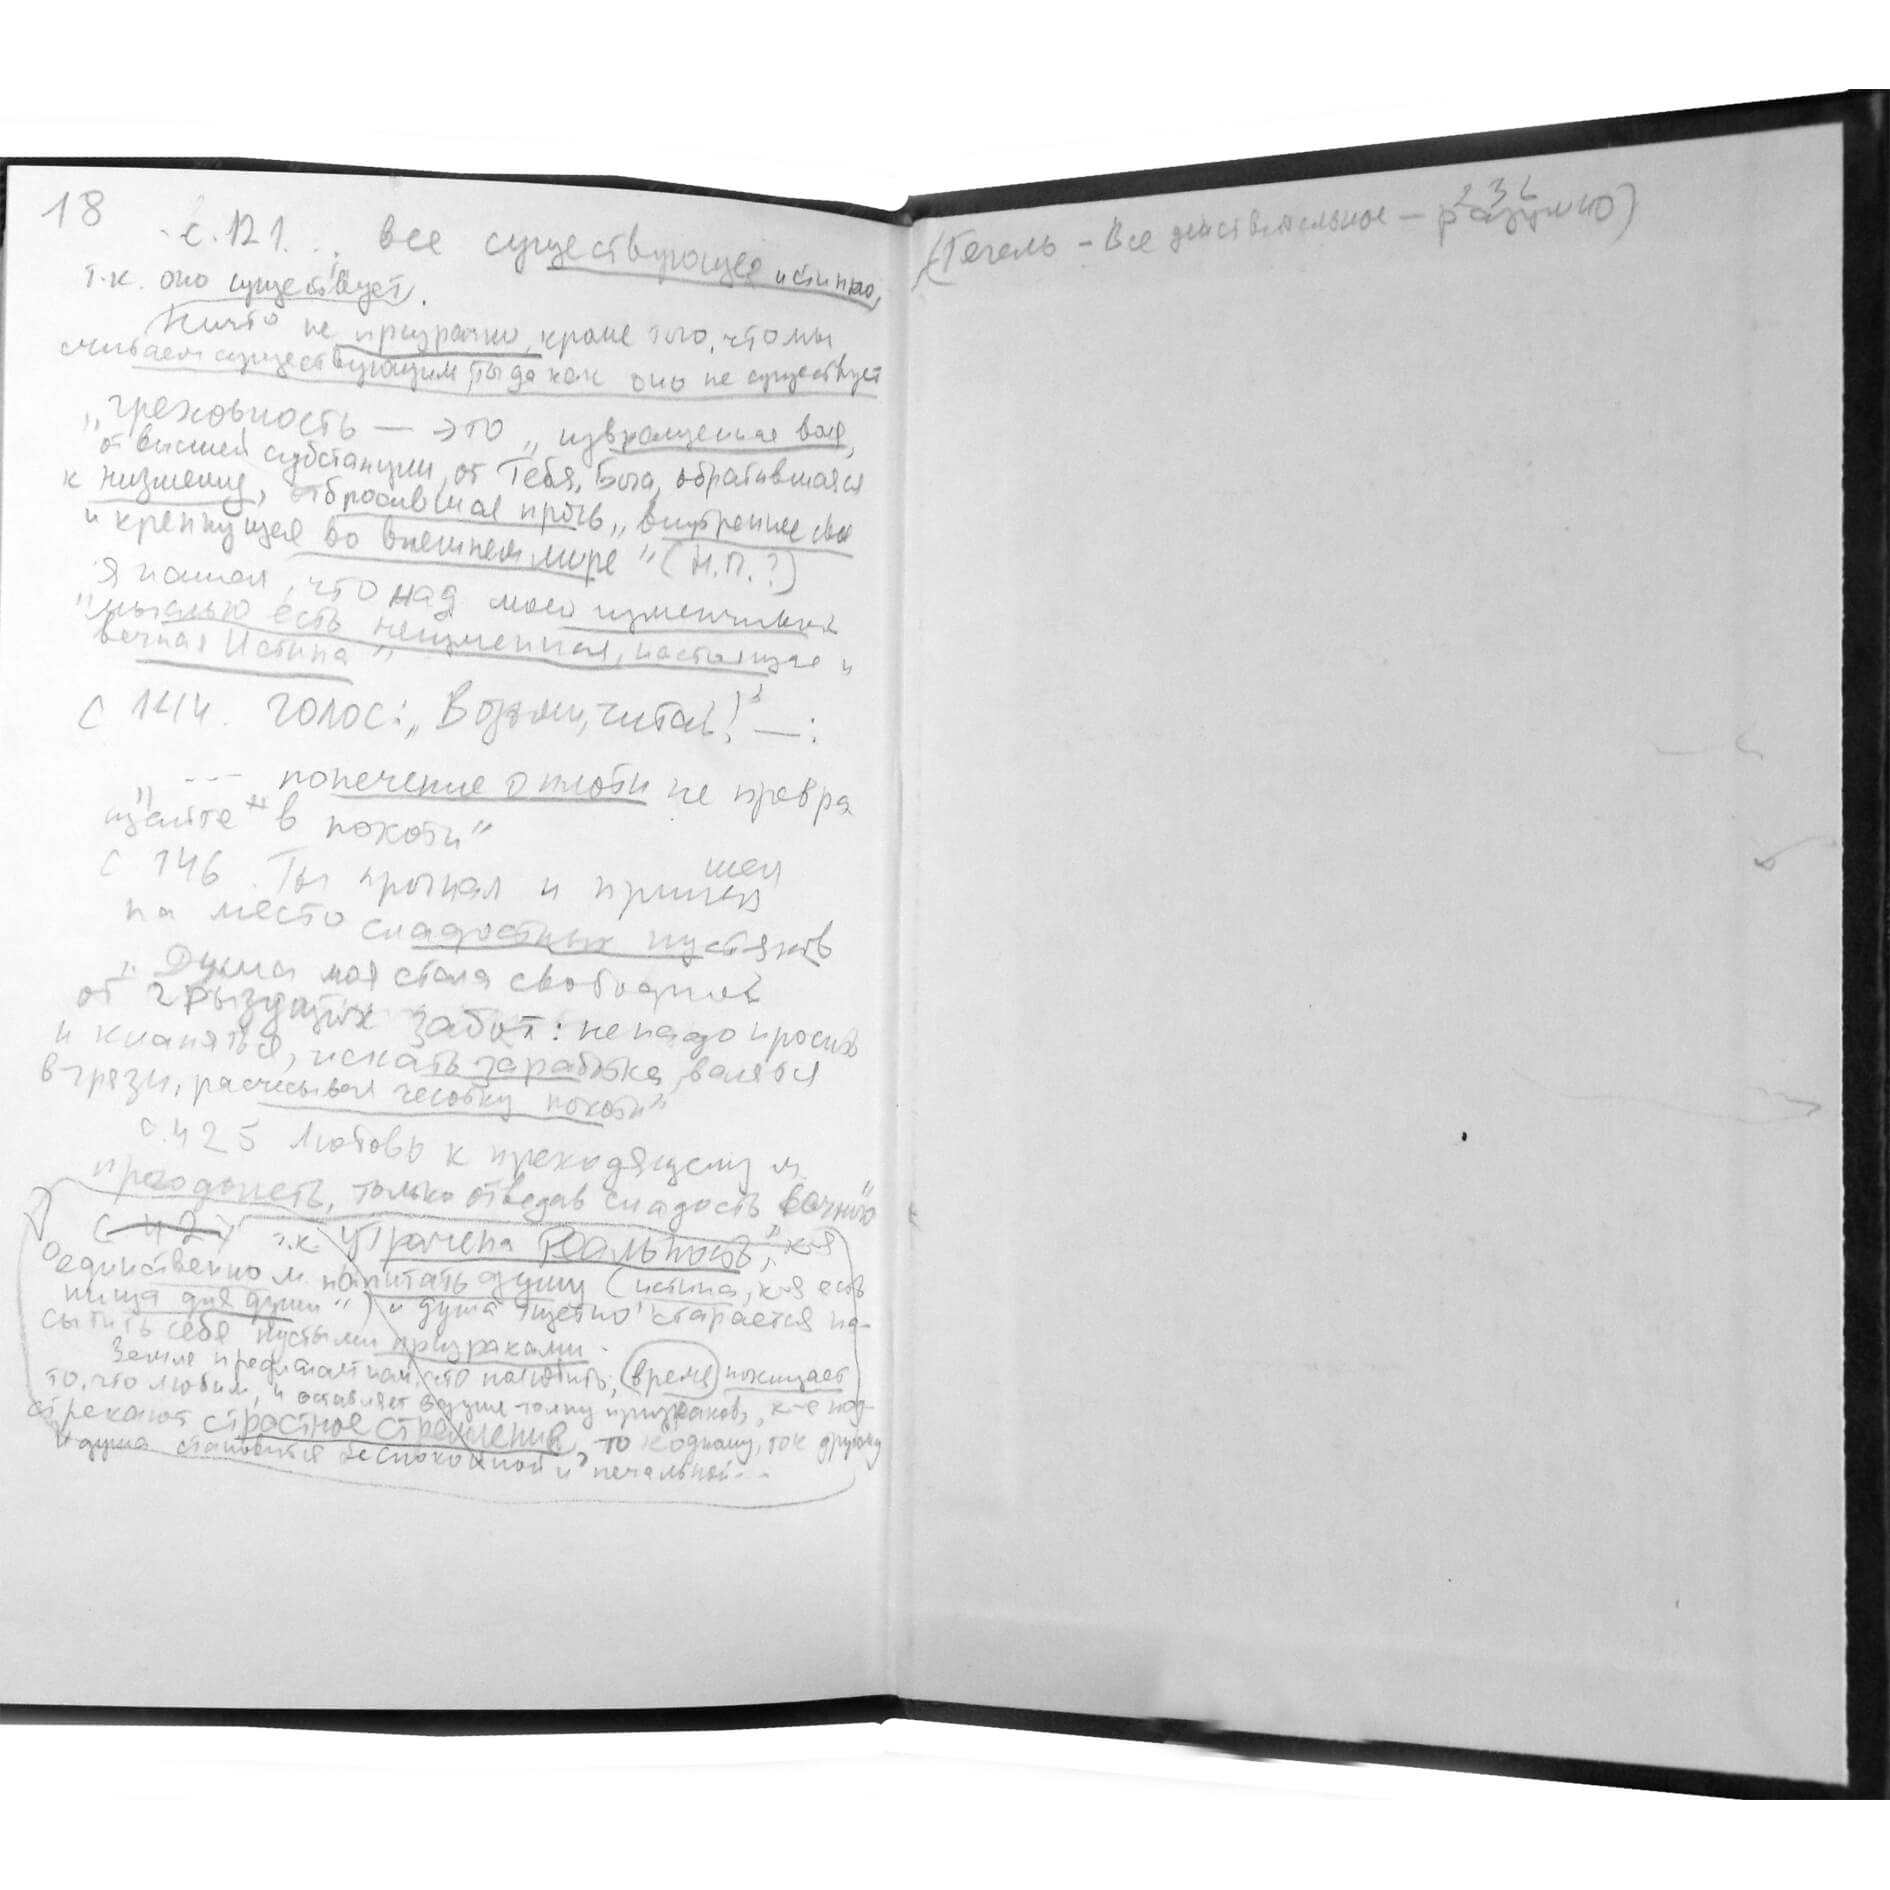 18
с. 121... все существующее истинно,
т.к. оно существует.
Ничто не призрачно, кроме того, что мы
считаем существующим, тогда как оно не существует
"греховность — это "извращенная воля,
от высшей субстанции, от Тебя, Бога, обратившаяся
к низшему, отбросившая прочь "внутреннее свое
и крепнущая во внешнем мире" (Н.П.?)
Я нашел, что над моей изменчивой
"мыслью есть неизменная, настоящая и
вечная Истина"
с 144. голос: "Возьми, читай!" —:
"--- попечение о плоти не превра
щайте в похоти"
с 146. Ты прогнал и пришел
шел
на место сладостных пустяков
"Душа моя стала свободной
от грызущих забот: не надо просить
и кланяться, искать заработка, валяться
в грязи, расчесывая чесотку похоти"
с. 425 Любовь к преходящему м.
преодолеть, только отведав сладость вечного"
с 427 т.к. Утрачена Реальность", к-я
единственно м. напитать душу (истина, к-я есть
пища для души") и душа тщетно старается на-
сытить себя пустыми призраками.
Земле предлагает нам, что полюбить, время похищает
то, что любим, и оставляет в душе толпу призраков, к-е под-
стрекают страстное стремление, то к одному, то к другому
и душа становится беспокойной и печальной...
(Гегель - Все действительное — разумно)
232